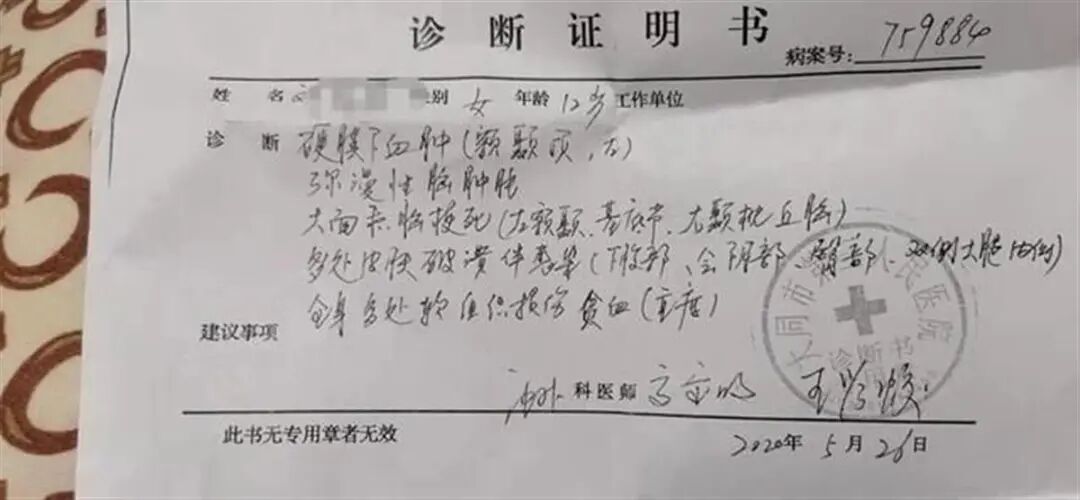 诊断证明书
病案号: 759884
姓 名 别 女 年龄 12岁 工作单位
诊 断 硬膜下血肿(额颞顶、左)
弥漫性脑肿胀
大面积脑梗死(左额颞、基底节、右颞枕丘脑)
多处皮肤破溃伴感染(下腹部、会阴部、臀部、双侧大腿内侧)
全身多处软组织损伤 贫血(重度)
建议事项
大同市 民医院
诊断书
科医师
此书无专用章者无效
2020年 5月 26日